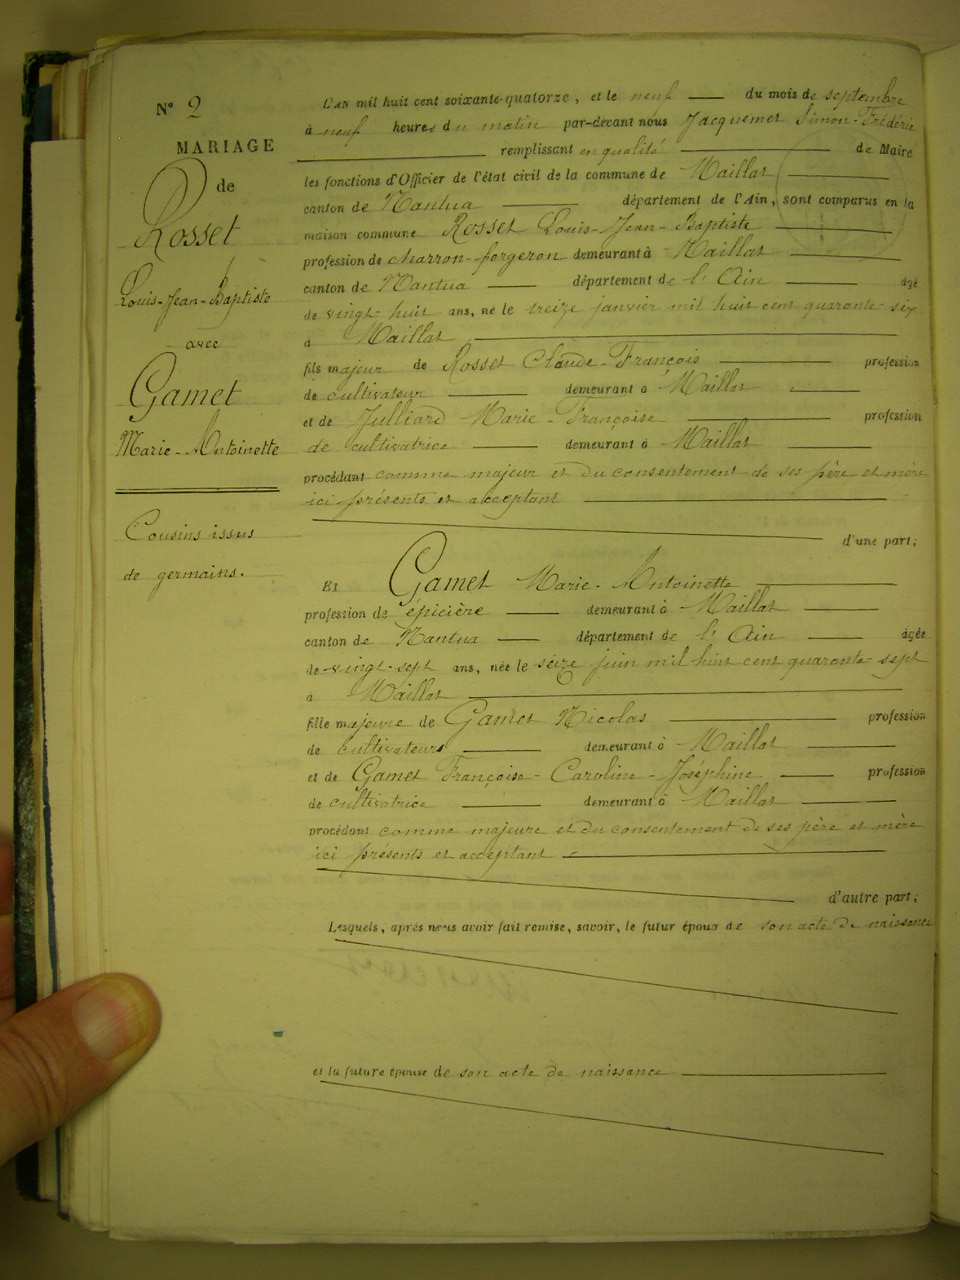 N° 2
MARIAGE
de
Rosset
Louis-Jean-Baptiste
avec
Gamet
Marie-Antoinette
Cousins issus
de germains.
L'an mil huit cent soixante-quatorze, et le neuf du mois de septembre
à neuf heures du matin par-devant nous Jacquemet Simon-Frédéric
remplissant en qualité de Maire
les fonctions d'Officier de l'état civil de la commune de Maillat
canton de Nantua département de l'Ain, sont comparus en la
maison commune Rosset Louis-Jean-Baptiste
profession de charron-forgeron demeurant à Maillat
canton de Nantua département de l'Ain âgé
de vingt-huit ans, né le treize janvier mil huit cent quarante-six
à Maillat
fils majeur de Rosset Claude-François profession
de cultivateur demeurant à Maillat
et de Julliard Marie-Françoise profession
de cultivatrice demeurant à Maillat
procédant comme majeur et du consentement de ses père et mère
ici présents et acceptant
d'une part;
Et Gamet Marie-Antoinette
profession de épicière demeurant à Maillat
canton de Nantua département de l'Ain âgée
de vingt-sept ans, née le seize juin mil huit cent quarante-sept
à Maillat
fille majeure de Gamet Nicolas profession
de cultivateur demeurant à Maillat
et de Gamet Françoise-Caroline-Joséphine profession
de cultivatrice demeurant à Maillat
procédant comme majeure et du consentement de ses père et mère
ici présents et acceptant
d'autre part;
Lesquels, après nous avoir fait remise, savoir, le futur époux de son acte de naissance
et la future épouse de son acte de naissance